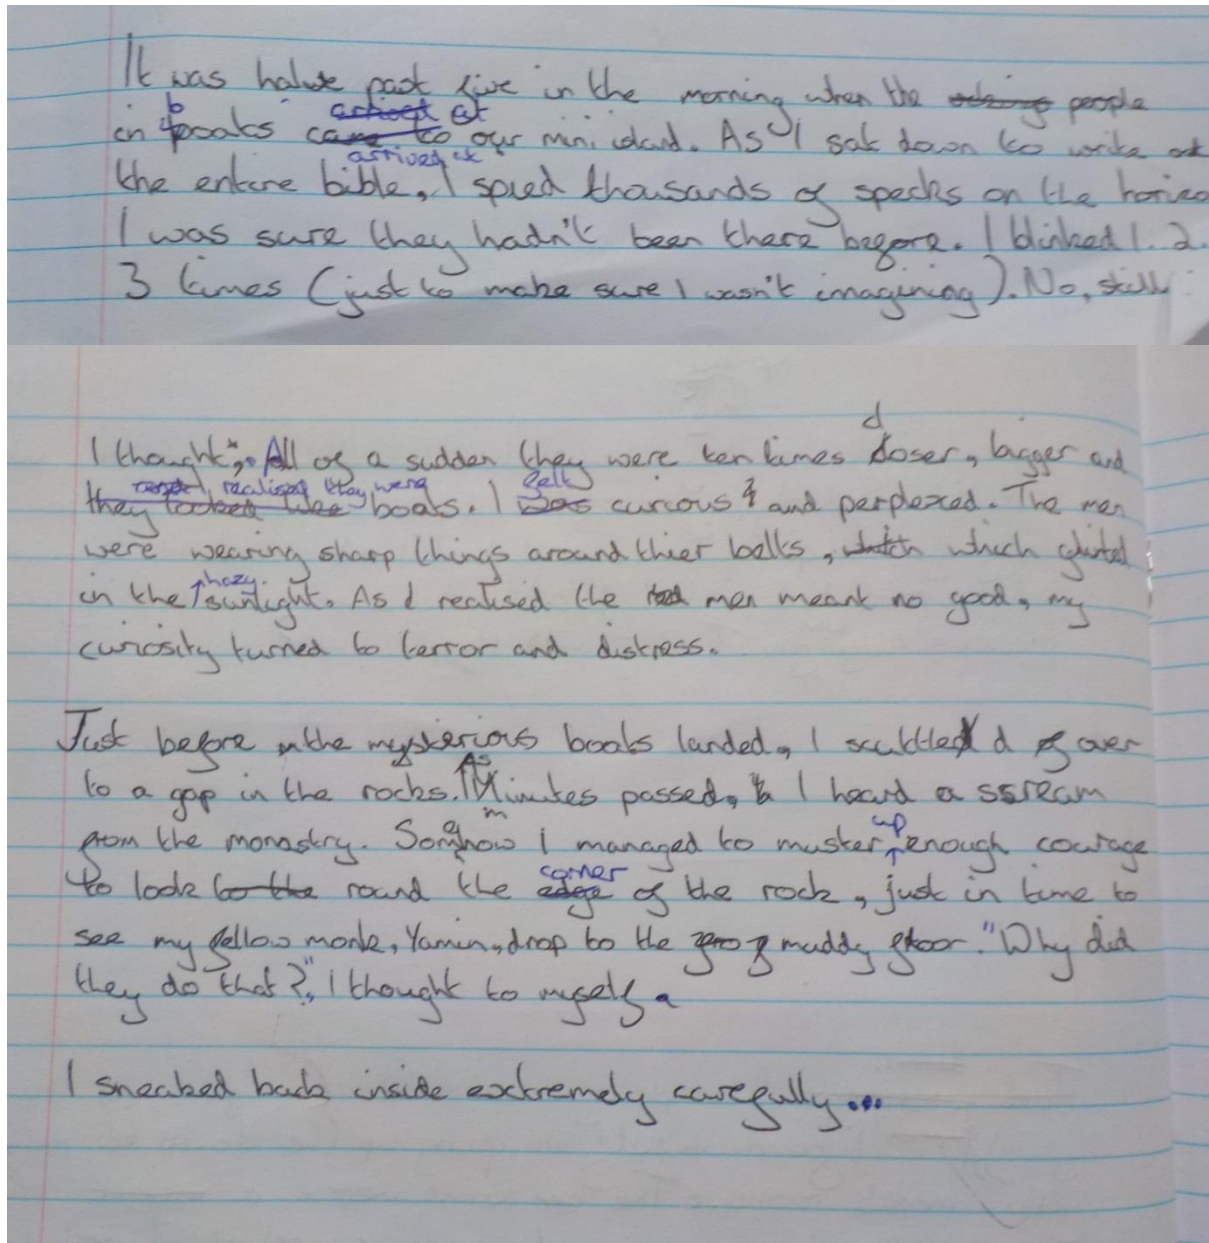 It was halve past five in the morning when the people
in boats arrived at our mini island. As I sat down to write out
the entire bible, I spied thousands of specks on the horizo
I was sure they hadn't been there before. I blinked 1. 2.
3 times (just to make sure I wasn't imagining). No, still
I thought". All of a sudden they were ten times closer, bigger and
realised they were boats. I felt curious and perplexed. The men
were wearing sharp things around thier belts, which glinted
in the hazy sunlight. As I realised the men meant no good, my
curiosity turned to terror and distress.
Just before the mysterious boats landed, I scuttled over
to a gap in the rocks. As minutes passed, I heard a sscream
from the monastry. Somehow I managed to muster up enough courage
to look round the corner of the rock, just in time to
see my fellow monk, Yamin, drop to the muddy floor. "Why did
they do that?", I thought to myself.
I sneaked back inside extremely carefully...